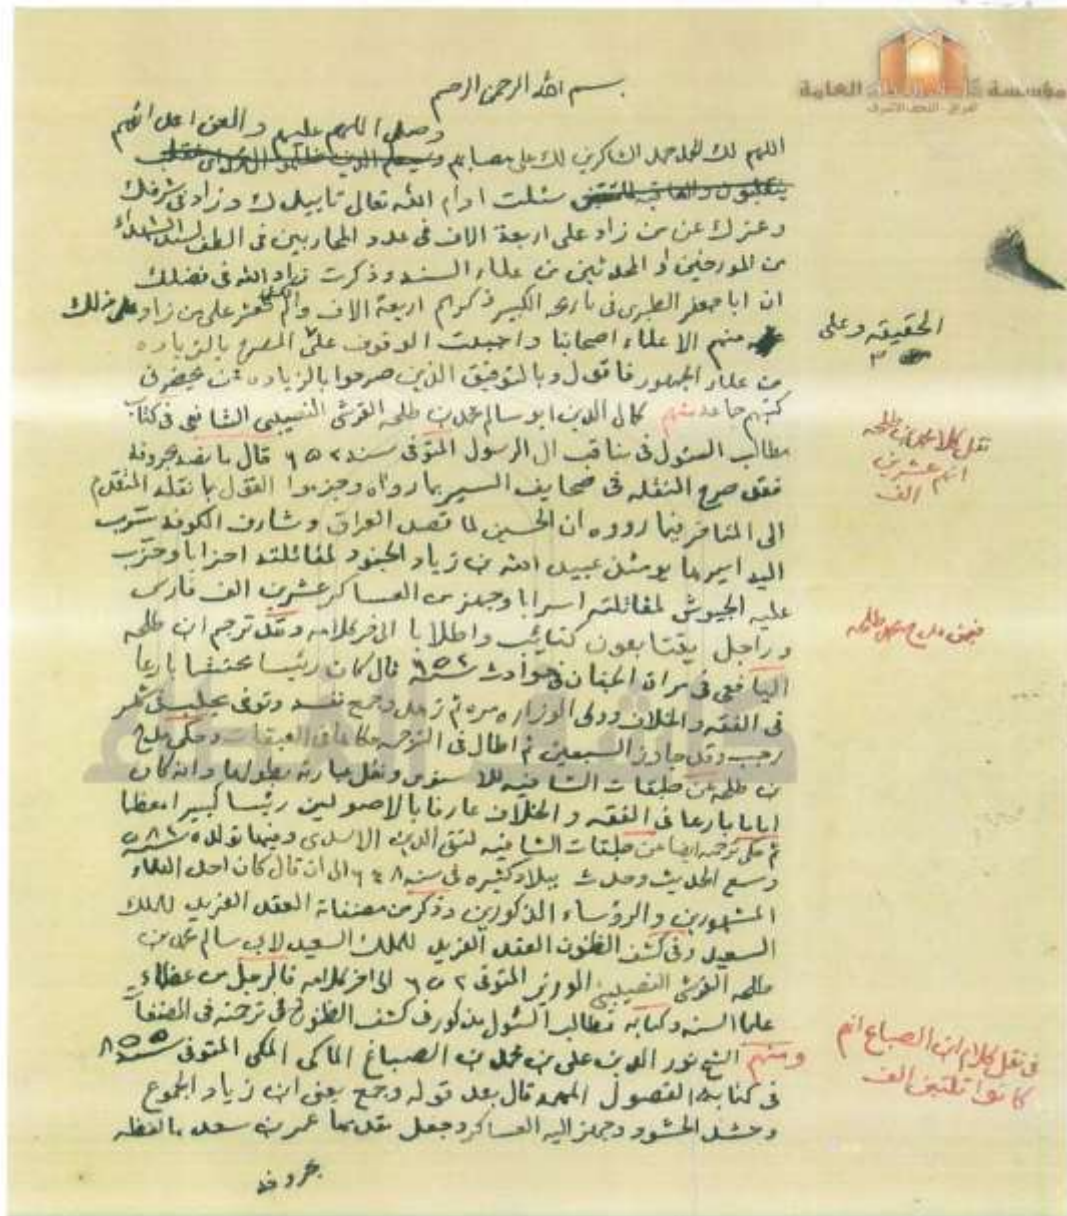 مؤسسة كاشف الغطاء العامة
العراق - النجف الاشرف
بسم الله الرحمن الرحيم
وصلى اللهم عليهم والعن اعدائهم
اللهم لك الحمد حمد الشاكرين لك على مصابهم وسيعلم الذين ظلموا اي منقلب
ينقلبون والعاقبة للمتقين سئلت ادام الله تعالى تاييدك وزاد في شرفك
وعزك عن من زاد على اربعة الاف في عدد المحاربين في الطف لسيد الشهداء
من المورخين او المحدثين من علماء السنه وذكرت زاد الله في فضلك
ان ابا جعفر الطبري في تاريخه الكبير ذكرهم اربعة الاف ولم تعثر على من زاد على ذلك
منهم الا علماء اصحابنا واحببت الوقوف على المصرح بالزياده
الحقيقه وعلى
من علماء الجمهور فاقول وبالتوفيق الذين صرحوا بالزياده ممن يحضرني
كتبهم جماعه منهم كمال الدين ابو سالم محمد بن طلحه القرشي النصيبي الشافعي في كتاب
نقل كلام محمد بن طلحه
انهم عشرين
الف
مطالب السئول في مناقب ال الرسول المتوفى سنه ٦٥٢ قال ما نصه بحروفه
فقد صرح النقله في صحايف السير بما رواه وجزموا القول بما نقله المتقدم
الى المتاخر فيما رووه ان الحسين لما قصد العراق وشارف الكوفه سرب
اليه اميرها يومئذ عبيد الله بن زياد الجنود لمقاتلته احزابا وحزب
عليه الجيوش لمقاتلته اسرابا وجهز من العساكر عشرين الف فارس
وراجل يتتابعون كتائب واطلابا الى اخر كلامه وقد ترجم ابن طلحه
اليافعي في مراة الجنان في حوادث سنة ٦٥٢ قال كان رئيسا محتشما بارعا
في الفقه والخلاف وولى الوزاره مره ثم زهد وجمع نفسه وتوفى بحلب في شهر
رجب وقد جاوز السبعين ثم اطال في الترجمه حكاها في العبقات وحكى مدح
بن طلحه عن طبقات الشافعيه للاسنوي ونقل عبارته بطولها وانه كان
اماما بارعا في الفقه والخلاف عارفا بالاصولين رئيسا كبيرا معظما
ثم حكى ترجمه ايضا من طبقات الشافعيه لتقي الدين الاسدي وفيها تولده سنة ٥٨٢
وسمع الحديث وحدث ببلاد كثيره في سنه ٦٤٨ الى ان قال كان احد العلماء
المشهورين والرؤساء المذكورين وذكر من مصنفاته العقد الفريد للملك
السعيد وفي كشف الظنون العقد الفريد للملك السعيد لابي سالم محمد بن
طلحه القرشي النصيبي الوزير المتوفى ٦٥٢ الى اخر كلامه فالرجل من عظماء
علماء السنه وكتابه مطالب السئول مذكور في كشف الظنون في ترجمته في المصنفات
ومنهم الشيخ نور الدين علي بن محمد بن الصباغ المالكي المكي المتوفى سنة ٨٥٥
في نقل كلام ابن الصباغ انهم
كانوا ثلثين الف
في كتابه الفصول المهمه قال بعد قوله وجمع يعني ابن زياد الجموع
وحشد الحشود وجهز اليه العساكر وجعل مقدمها عمر بن سعد ما لفظه
بحروفه
كاشف الغطاء